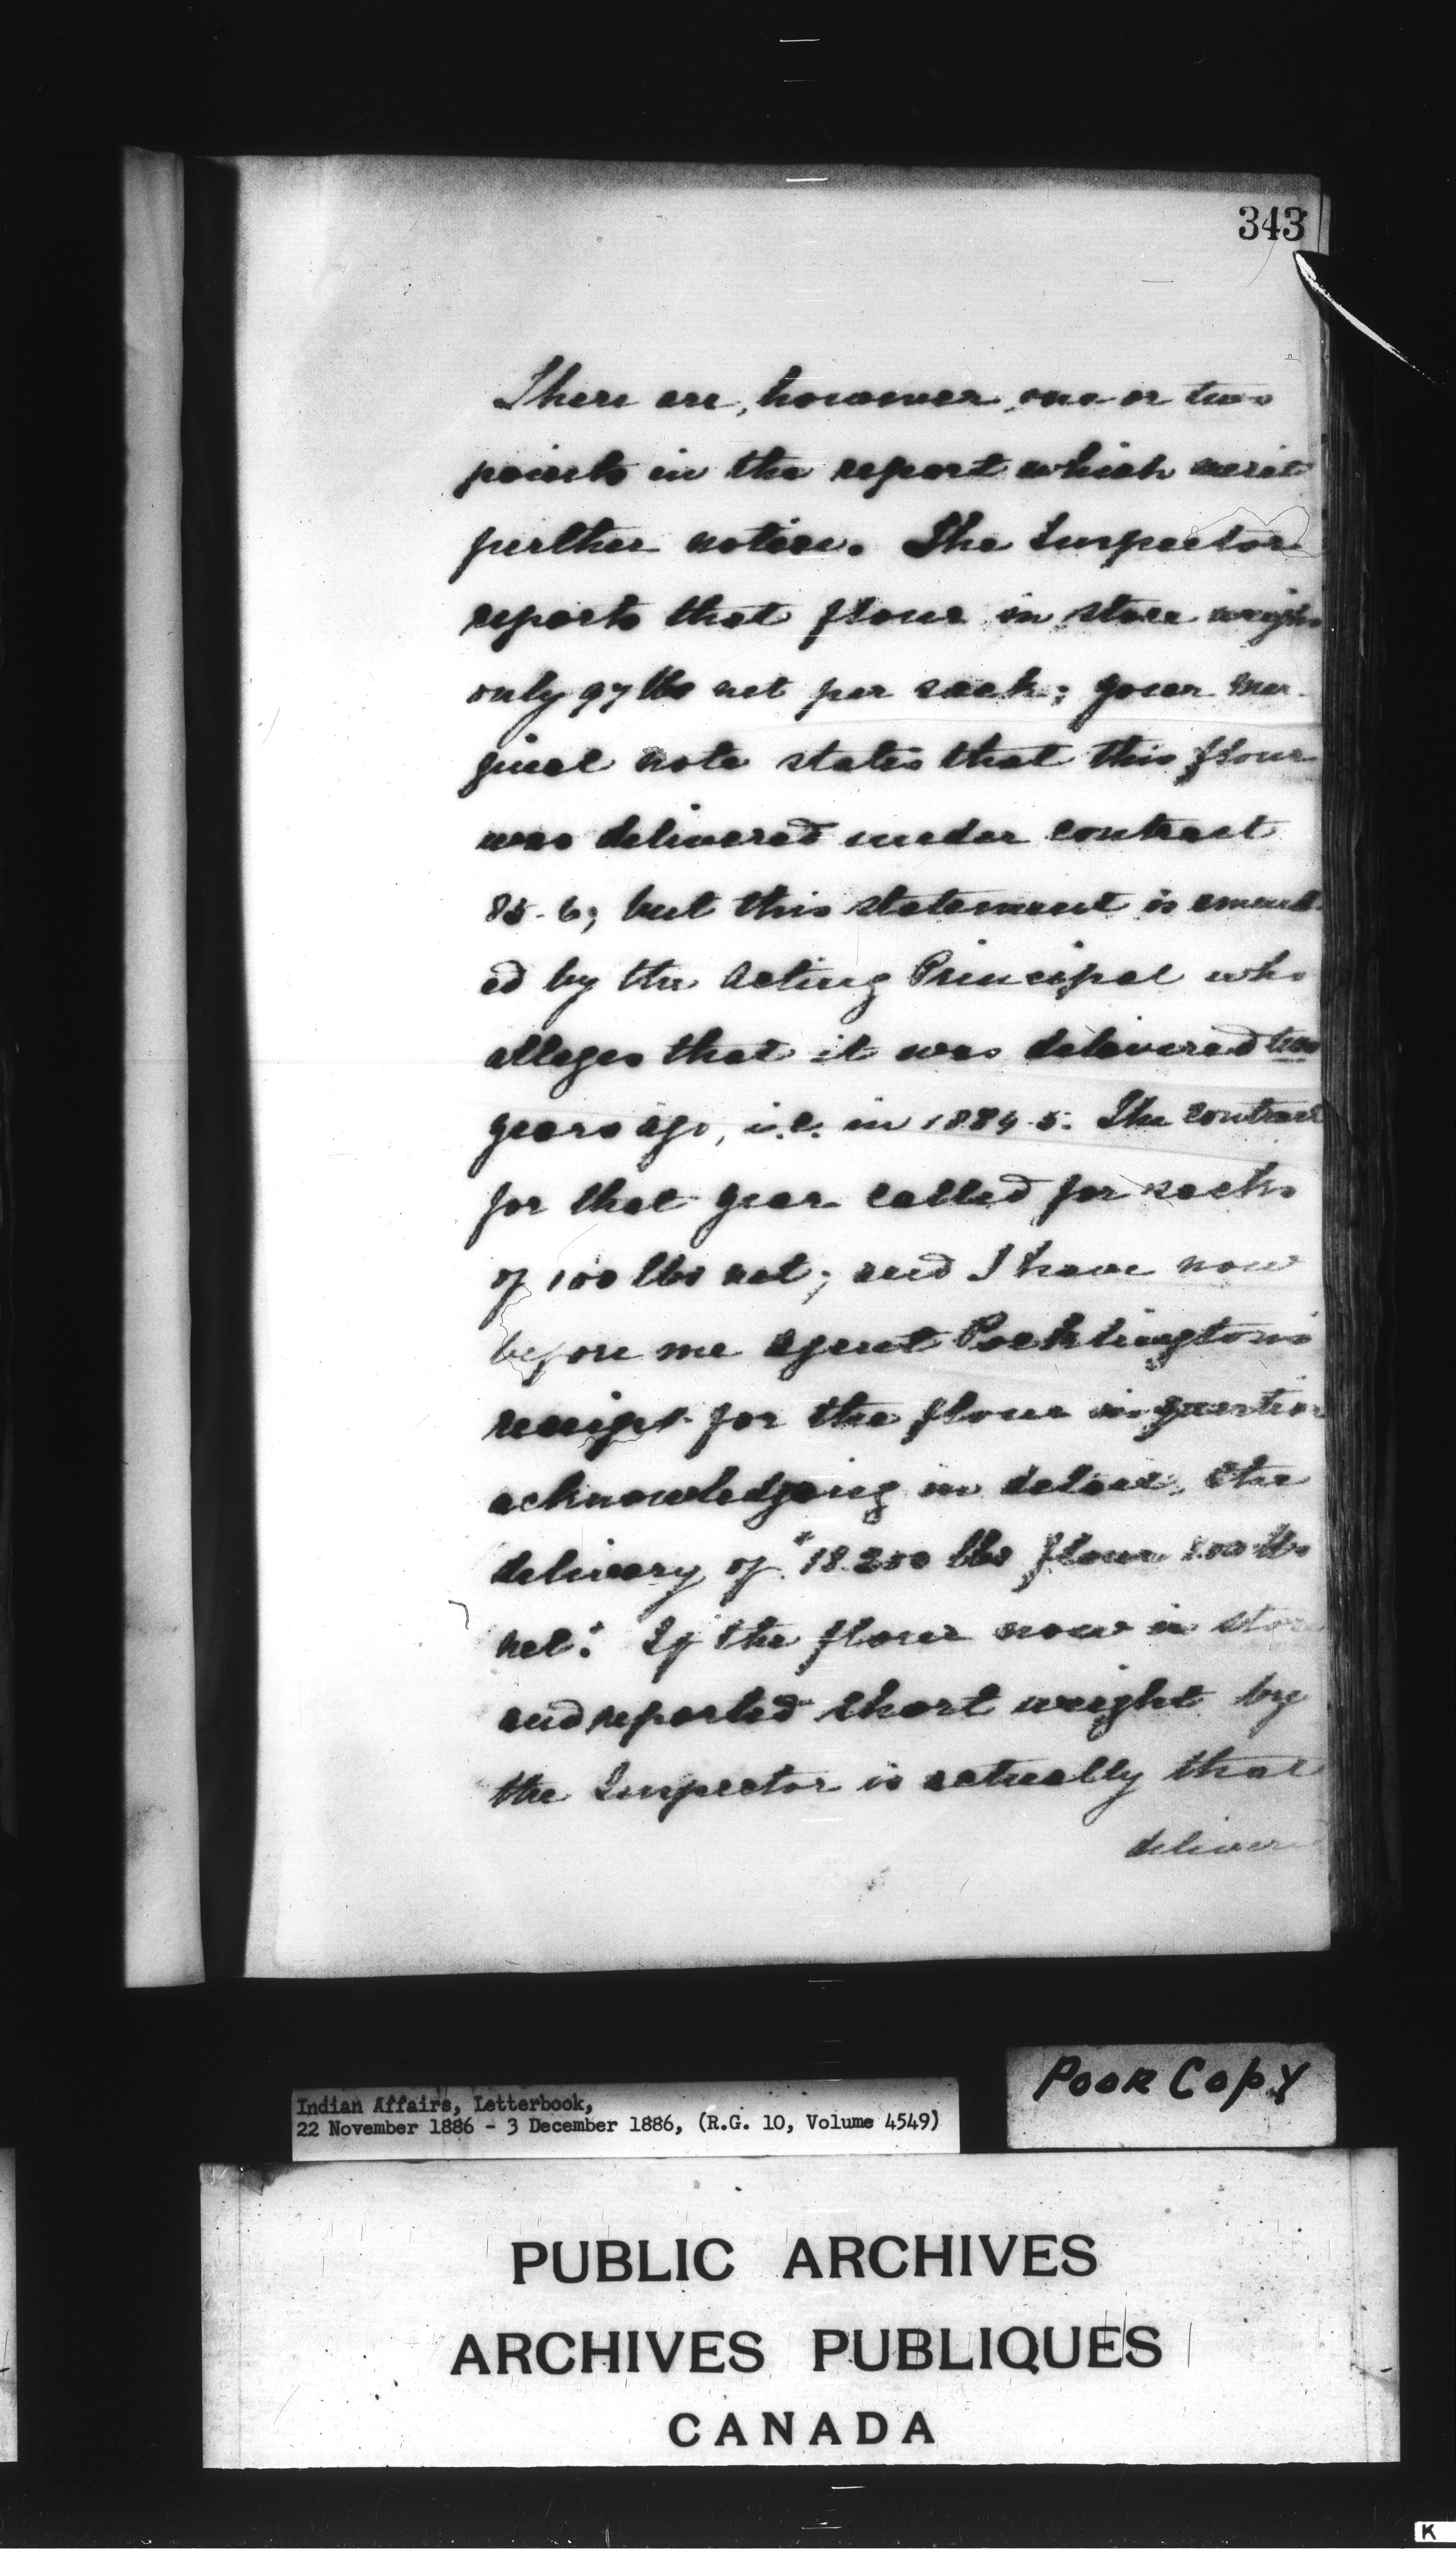 343
There are, however, one or two
points in the report which merit
further notice. The Inspector
reports that flour in store weighs
only 97 lbs net per sack; your mar-
ginal note states that this flour
was delivered under contract
85-6; but this statement is amend-
ed by the Acting Principal who
alleges that it was delivered two
years ago, i.e. in 1884-5. The contract
for that year called for sacks
of 100 lbs net; and I have now
before me Agent Pocklington's
receipt for the flour in question
acknowledging in detail, the
delivery of "18.200 lbs flour 100 lbs
net". If the flour now in store
and reported short weight by
the Inspector is actually that
delivered
Poor Copy
Indian Affairs, Letterbook,
22 November 1886 - 3 December 1886, (R.G. 10, Volume 4549)
PUBLIC ARCHIVES
ARCHIVES PUBLIQUES
CANADA
K